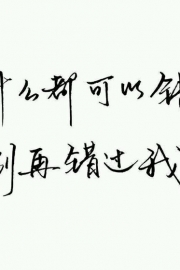 什么都可以错
别再错过我